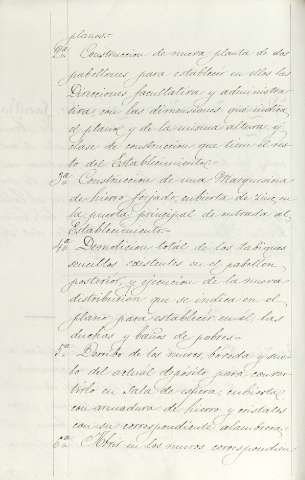 planos.-
2ª Construccion de nueva planta de dos
pabellones para establecer en ellos las
Direcciones facultativa y administra-
tiva con las dimensiones que indica
el plano y de la misma altura y
clase de construccion que tiene el res-
to del Establecimiento.-
3ª Construccion de una Marquesina
de hierro forjado, cubierta de zinc, en
la puerta principal de entrada al
Establecimiento.-
4ª Demolicion total de los tabiques
sencillos existentes en el pabellon
posterior, y ejecucion de la nueva
distribucion que se indica en el
plano para establecer en él las
duchas y baños de pobres.-
5ª Derribo de los muros, boveda y
del actual deposito para conver-
tirlo en Sala de espera, cubierta
con armadura de hierro y cristales
con su correspondiente alambrera.
6ª Abrir en los muros correspondien-